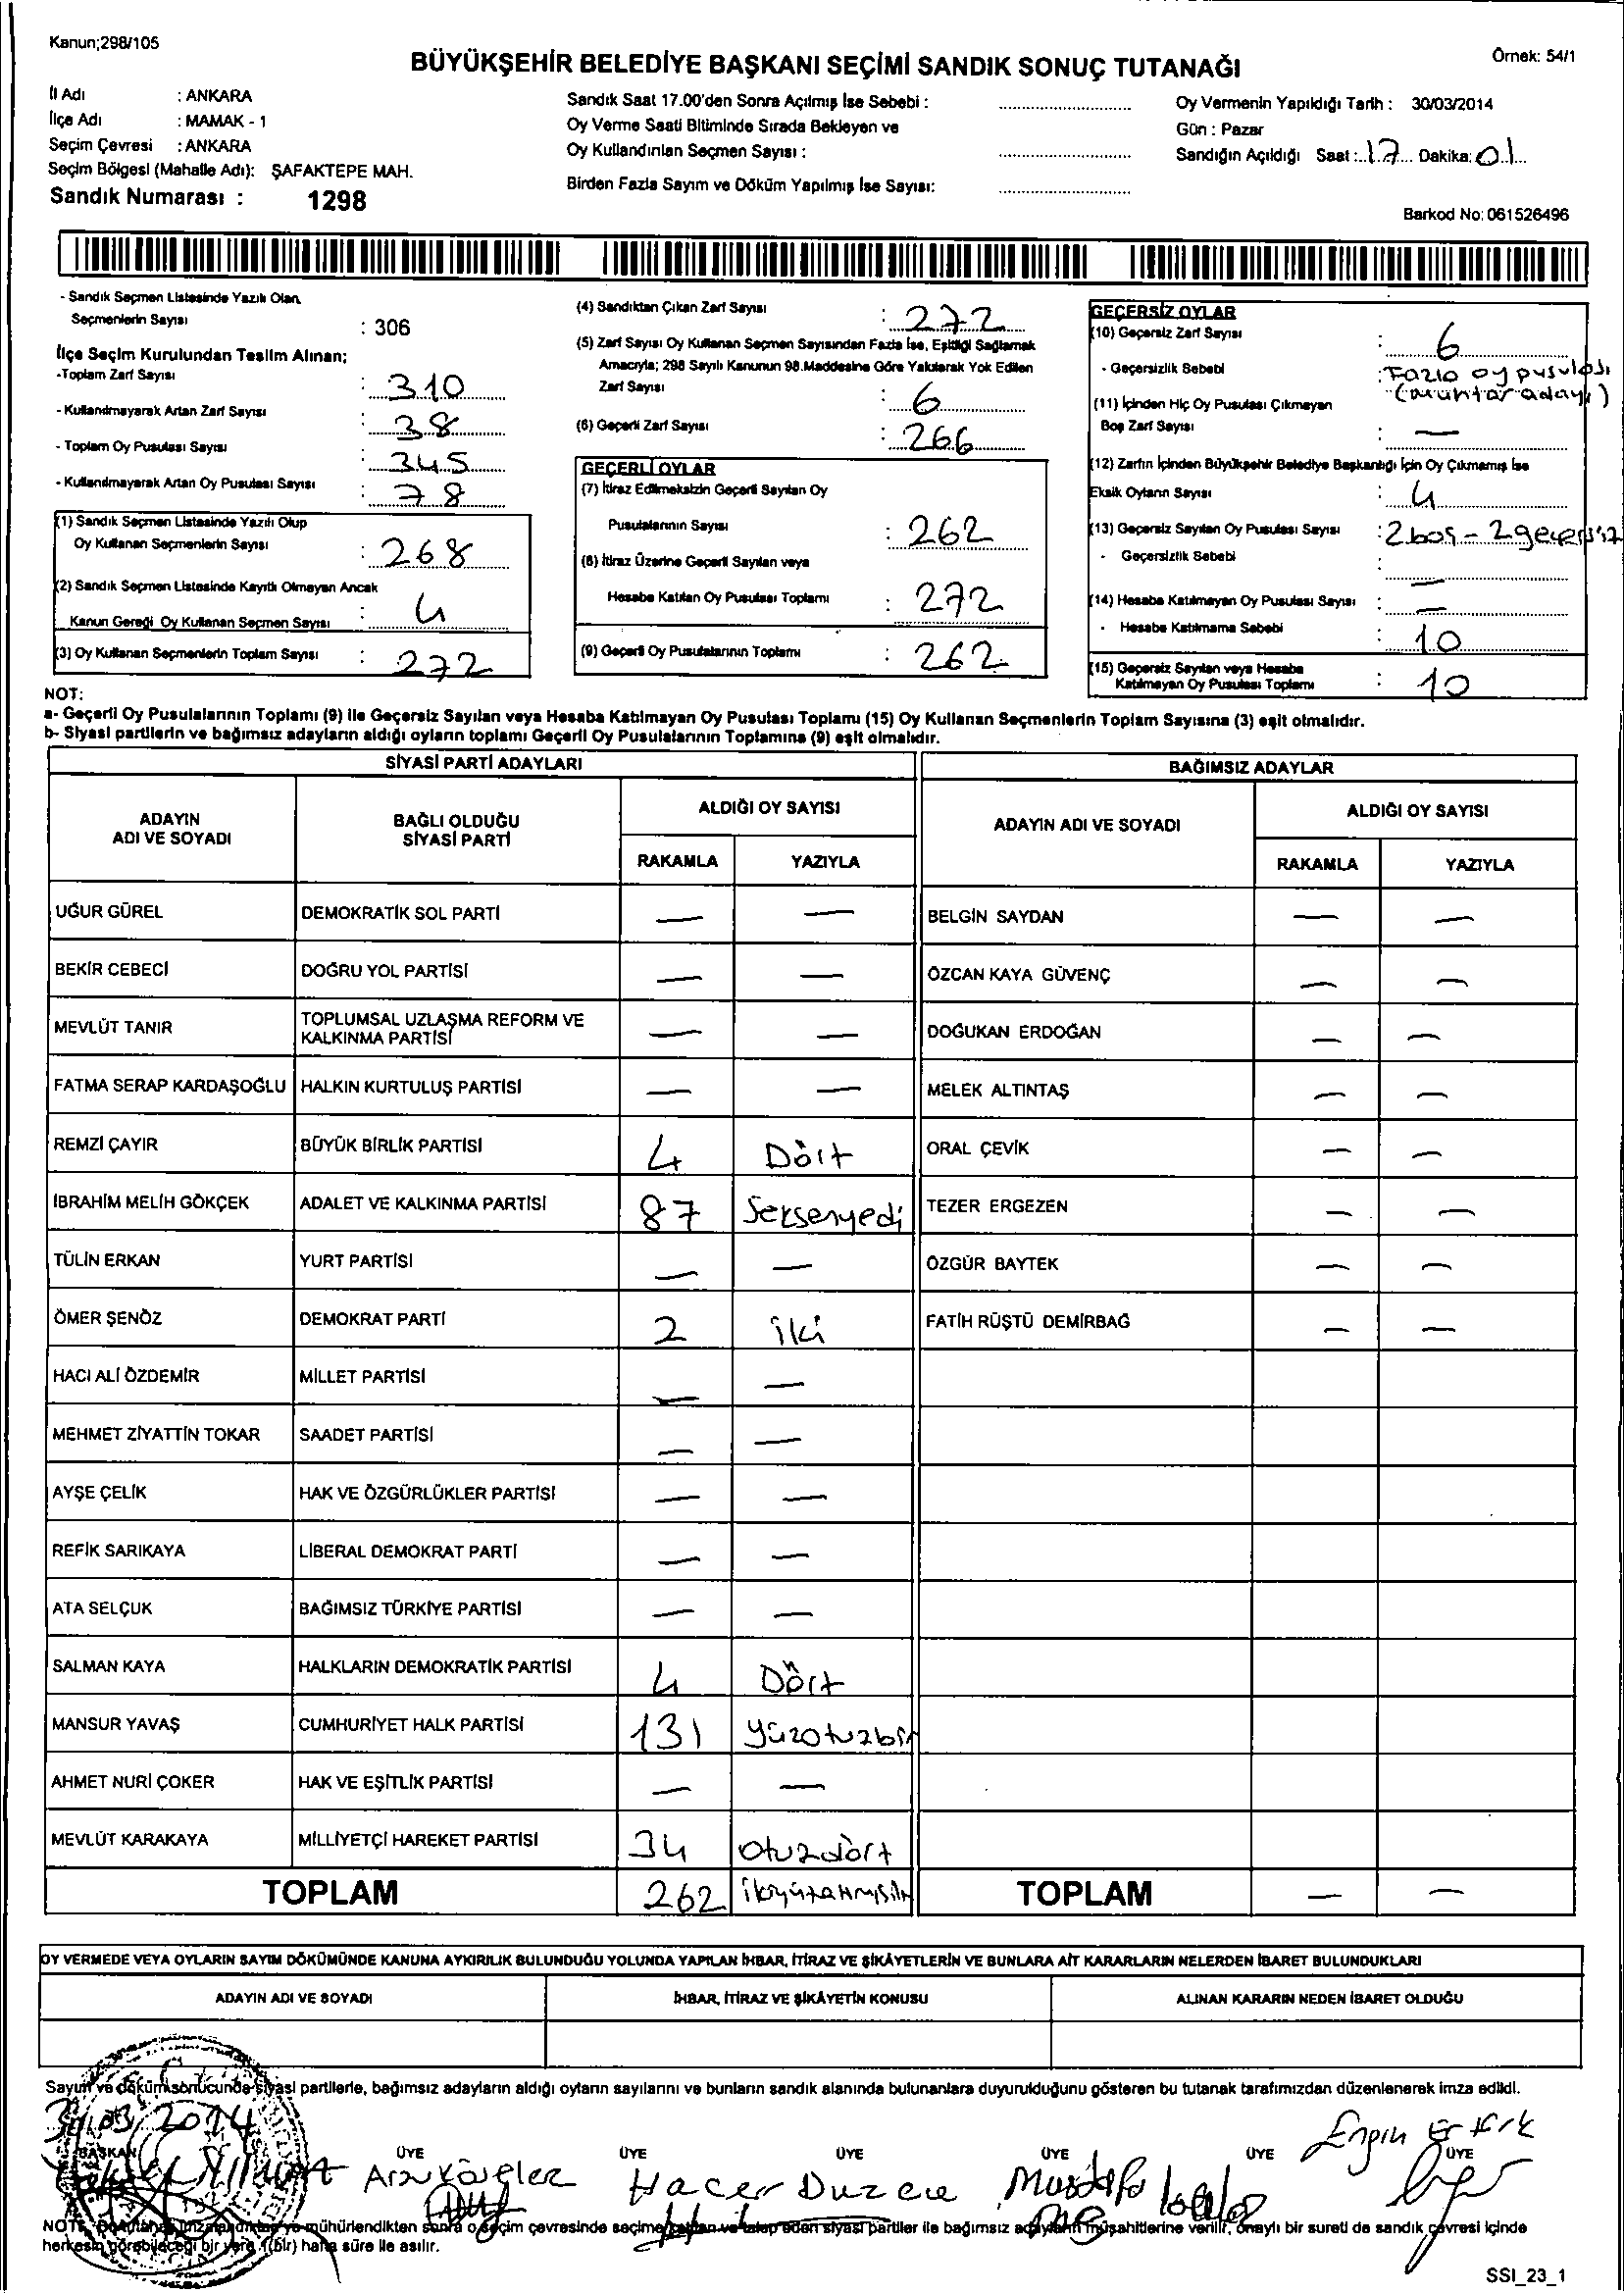 Kanun;298/105
Örnek: 54/1
BÜYÜKŞEHİR BELEDİYE BAŞKANI SEÇİMİ SANDIK SONUÇ TUTANAĞI
İl Adı : ANKARA
İlçe Adı : MAMAK - 1
Seçim Çevresi : ANKARA
Seçim Bölgesi (Mahalle Adı): ŞAFAKTEPE MAH.
Sandık Numarası : 1298
Sandık Saat 17.00'den Sonra Açılmış İse Sebebi :
Oy Verme Saati Bitiminde Sırada Bekleyen ve
Oy Kullandırılan Seçmen Sayısı :
Birden Fazla Sayım ve Döküm Yapılmış İse Sayısı:
Oy Vermenin Yapıldığı Tarih : 30/03/2014
Gün : Pazar
Sandığın Açıldığı Saat : 17 Dakika: 01
Barkod No: 061526496
- Sandık Seçmen Listesinde Yazılı Olan
Seçmenlerin Sayısı : 306
İlçe Seçim Kurulundan Teslim Alınan;
-Toplam Zarf Sayısı : 310
- Kullanılmayarak Artan Zarf Sayısı : 38
- Toplam Oy Pusulası Sayısı : 345
- Kullanılmayarak Artan Oy Pusulası Sayısı : 78
(1) Sandık Seçmen Listesinde Yazılı Olup
Oy Kullanan Seçmenlerin Sayısı : 268
(2) Sandık Seçmen Listesinde Kayıtlı Olmayan Ancak
Kanun Gereği Oy Kullanan Seçmen Sayısı : 4
(3) Oy Kullanan Seçmenlerin Toplam Sayısı : 272
(4) Sandıktan Çıkan Zarf Sayısı : 272
(5) Zarf Sayısı Oy Kullanan Seçmen Sayısından Fazla İse, Eşitliği Sağlamak
Amacıyla; 298 Sayılı Kanunun 98.Maddesine Göre Yakılarak Yok Edilen
Zarf Sayısı : 6
(6) Geçerli Zarf Sayısı : 266
GEÇERLİ OYLAR
(7) İtiraz Edilmeksizin Geçerli Sayılan Oy
Pusulalarının Sayısı : 262
(8) İtiraz Üzerine Geçerli Sayılan veya
Hesaba Katılan Oy Pusulası Toplamı : 272
(9) Geçerli Oy Pusulalarının Toplamı : 262
GEÇERSİZ OYLAR
(10) Geçersiz Zarf Sayısı : 6
- Geçersizlik Sebebi : Fazla oy pusulası
(muhtar adayı)
(11) İçinden Hiç Oy Pusulası Çıkmayan
Boş Zarf Sayısı : —
(12) Zarfın İçinden Büyükşehir Belediye Başkanlığı İçin Oy Çıkmamış İse
Eksik Oyların Sayısı : 4
(13) Geçersiz Sayılan Oy Pusulası Sayısı : 2 boş - 2 geçersiz
- Geçersizlik Sebebi : —
(14) Hesaba Katılmayan Oy Pusulası Sayısı : —
- Hesaba Katılmama Sebebi : 10
(15) Geçersiz Sayılan veya Hesaba
Katılmayan Oy Pusulası Toplamı : 10
NOT:
a- Geçerli Oy Pusulalarının Toplamı (9) ile Geçersiz Sayılan veya Hesaba Katılmayan Oy Pusulası Toplamı (15) Oy Kullanan Seçmenlerin Toplam Sayısına (3) eşit olmalıdır.
b- Siyasi partilerin ve bağımsız adayların aldığı oyların toplamı Geçerli Oy Pusulalarının Toplamına (9) eşit olmalıdır.
SİYASİ PARTİ ADAYLARI
BAĞIMSIZ ADAYLAR
ADAYIN ADI VE SOYADI
BAĞLI OLDUĞU SİYASİ PARTİ
ALDIĞI OY SAYISI
RAKAMLA YAZIYLA
ADAYIN ADI VE SOYADI
ALDIĞI OY SAYISI
RAKAMLA YAZIYLA
UĞUR GÜREL DEMOKRATİK SOL PARTİ — — BELGİN SAYDAN — —
BEKİR CEBECİ DOĞRU YOL PARTİSİ — — ÖZCAN KAYA GÜVENÇ — —
MEVLÜT TANIR TOPLUMSAL UZLAŞMA REFORM VE KALKINMA PARTİSİ — — DOĞUKAN ERDOĞAN — —
FATMA SERAP KARDAŞOĞLU HALKIN KURTULUŞ PARTİSİ — — MELEK ALTINTAŞ — —
REMZİ ÇAYIR BÜYÜK BİRLİK PARTİSİ 4 Dört ORAL ÇEVİK — —
İBRAHİM MELİH GÖKÇEK ADALET VE KALKINMA PARTİSİ 87 Seksenyedi TEZER ERGEZEN — —
TÜLİN ERKAN YURT PARTİSİ — — ÖZGÜR BAYTEK — —
ÖMER ŞENÖZ DEMOKRAT PARTİ 2 iki FATİH RÜŞTÜ DEMİRBAĞ — —
HACI ALİ ÖZDEMİR MİLLET PARTİSİ — —
MEHMET ZİYATTİN TOKAR SAADET PARTİSİ — —
AYŞE ÇELİK HAK VE ÖZGÜRLÜKLER PARTİSİ — —
REFİK SARIKAYA LİBERAL DEMOKRAT PARTİ — —
ATA SELÇUK BAĞIMSIZ TÜRKİYE PARTİSİ — —
SALMAN KAYA HALKLARIN DEMOKRATİK PARTİSİ 4 Dört
MANSUR YAVAŞ CUMHURİYET HALK PARTİSİ 131 yüzotuzbir
AHMET NURİ ÇOKER HAK VE EŞİTLİK PARTİSİ — —
MEVLÜT KARAKAYA MİLLİYETÇİ HAREKET PARTİSİ 34 otuzdört
TOPLAM 262 TOPLAM — —
OY VERMEDE VEYA OYLARIN SAYIM DÖKÜMÜNDE KANUNA AYKIRILIK BULUNDUĞU YOLUNDA YAPILAN İHBAR, İTİRAZ VE ŞİKÂYETLERİN VE BUNLARA AİT KARARLARIN NELERDEN İBARET BULUNDUKLARI
ADAYIN ADI VE SOYADI İHBAR, İTİRAZ VE ŞİKÂYETİN KONUSU ALINAN KARARIN NEDEN İBARET OLDUĞU
Sayım ve döküm sonucunda siyasi partilerle, bağımsız adayların aldığı oyların sayılarını ve bunların sandık alanında bulunanlara duyurulduğunu gösteren bu tutanak tarafımızdan düzenlenerek imza edildi.
03/2014
BAŞKAN ÜYE ÜYE ÜYE ÜYE ÜYE ÜYE
Hacer Mustafa Engin
NOT: mühürlendikten sonra o seçim çevresinde seçime siyasi partiler ile bağımsız adayların müşahitlerine verilir, onaylı bir sureti de sandık çevresi içinde
herkesin görebileceği bir yere 1(bir) hafta süre ile asılır.
SSI_23_1